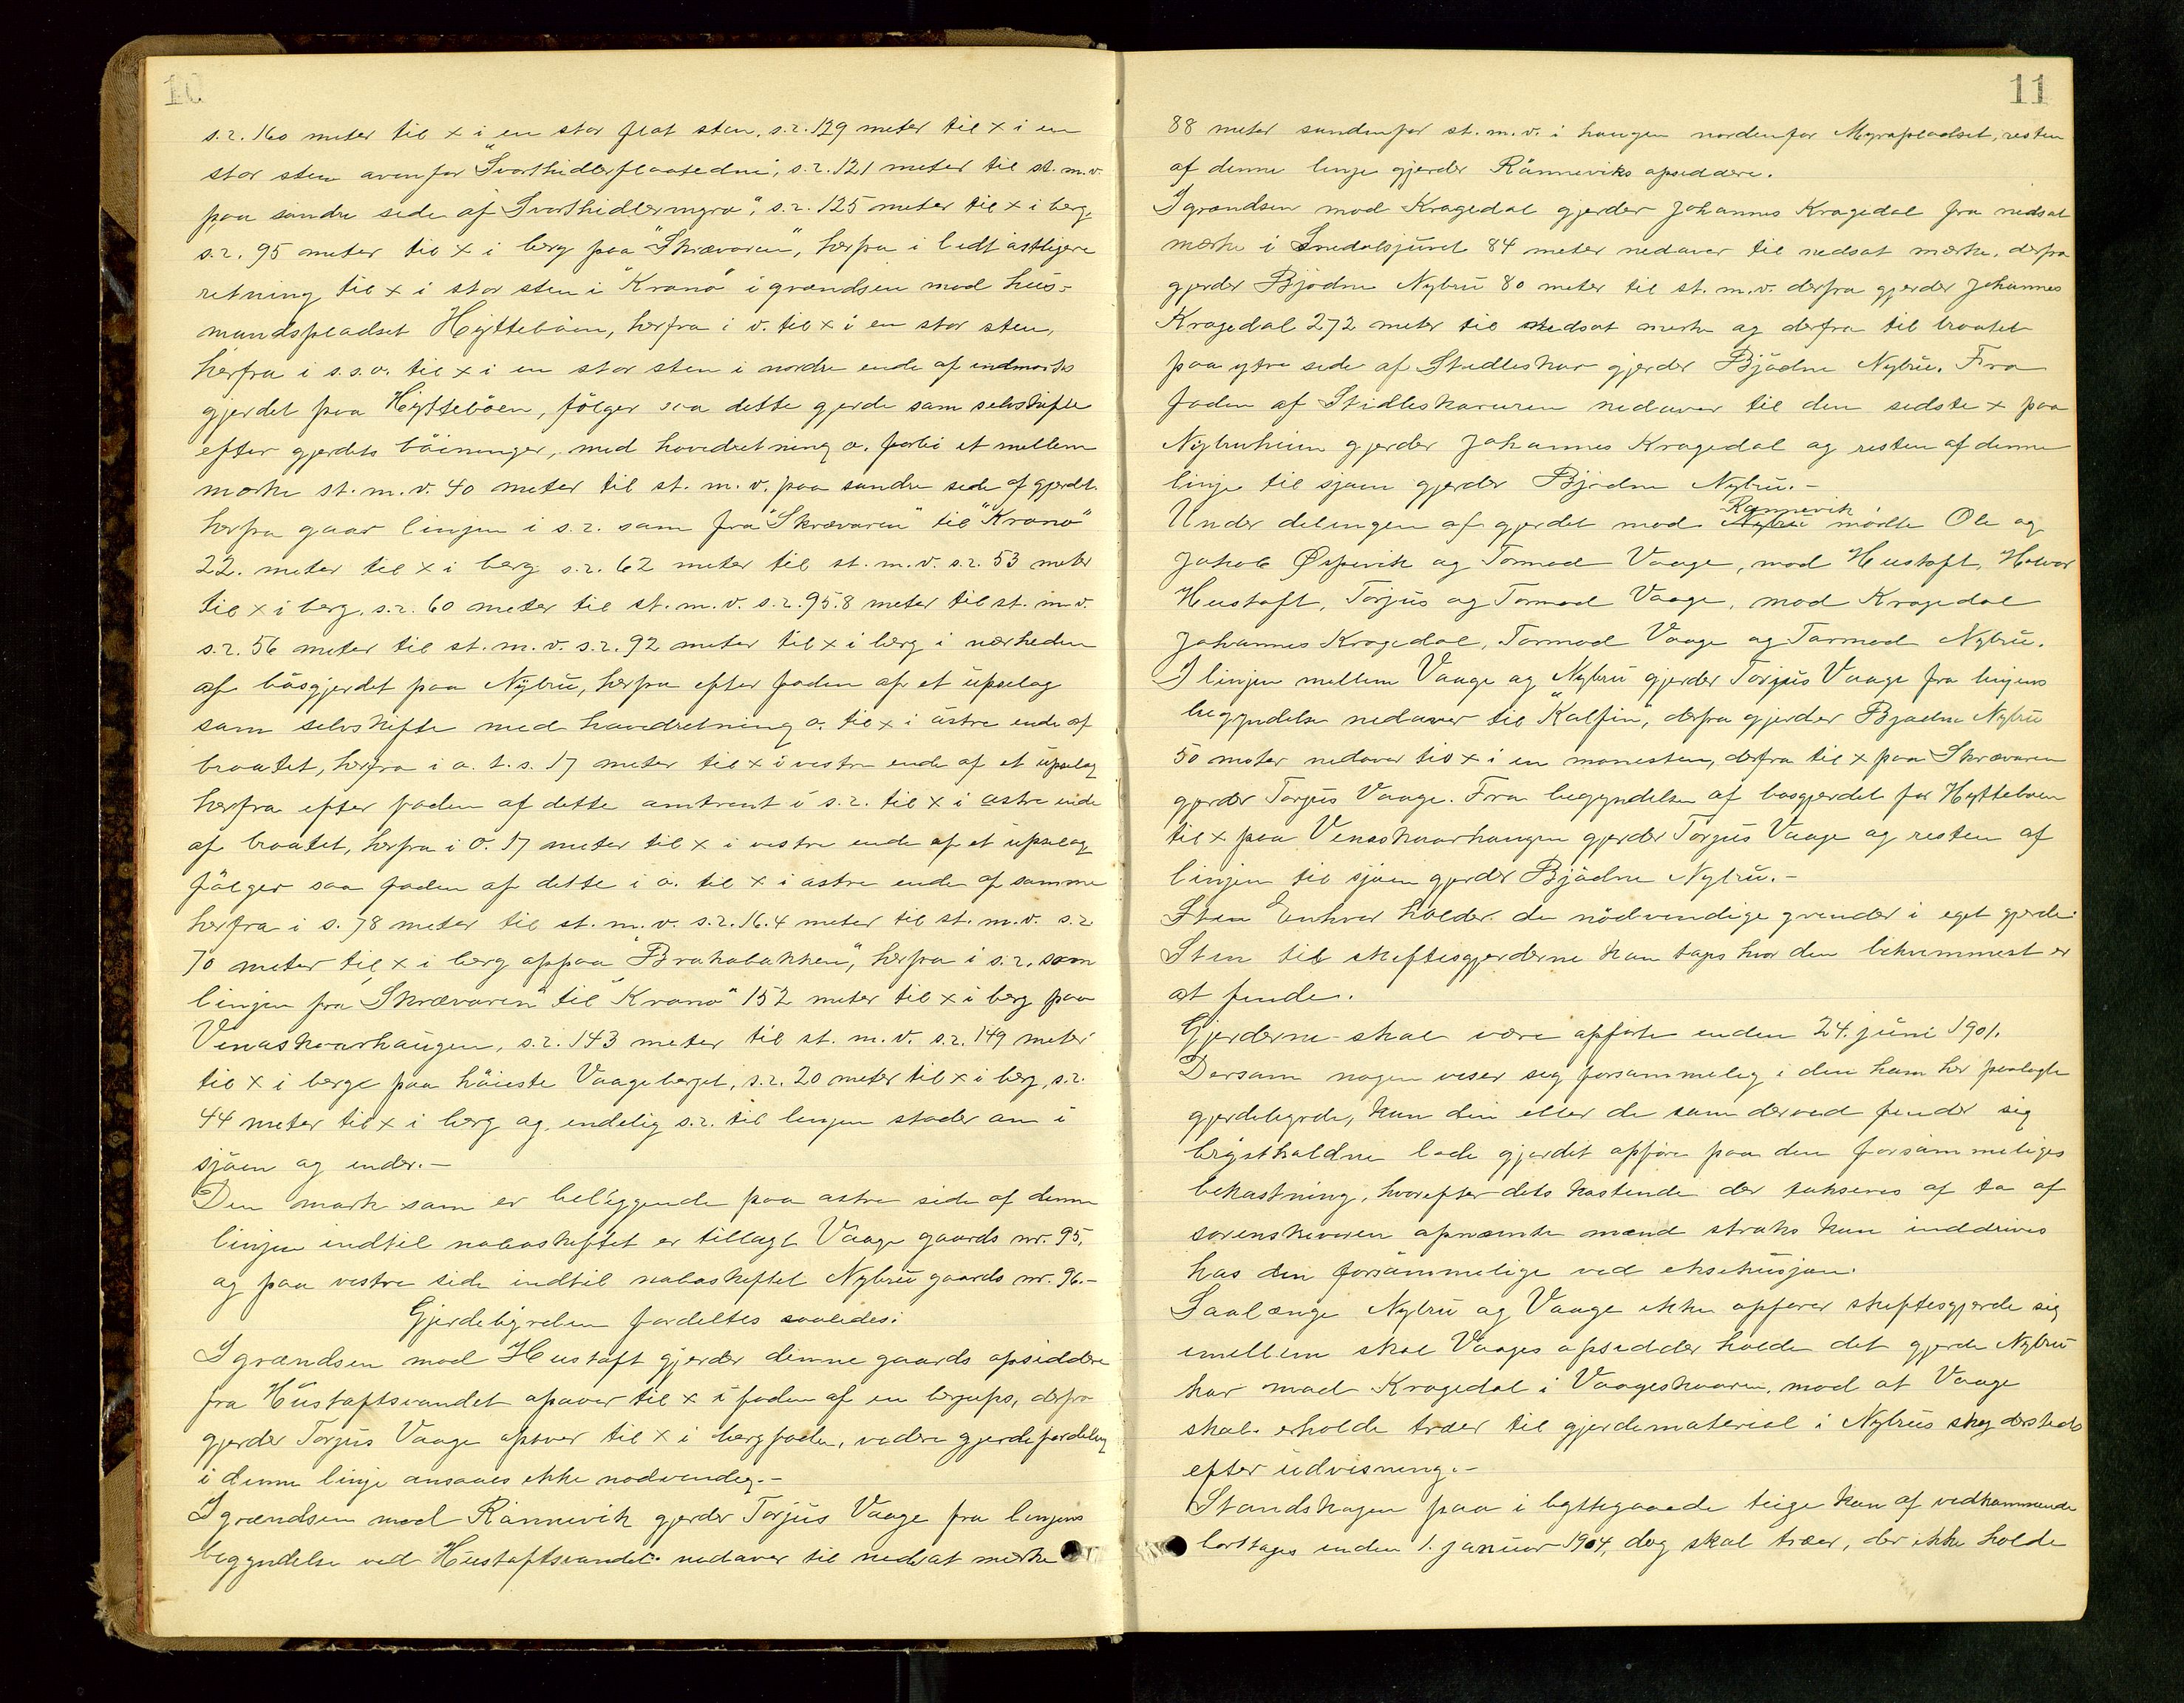 10
s.r. 160 meter til x i en stor flat sten, s.r. 129 meter til x i en
stor sten ovenfor "Svorthidlerflaatedne", s.r. 121 meter til st. m. v.
paa søndre side af "Svorthidlermyra", s.r. 125 meter til x i berg,
s.r. 95 meter til x i berg paa "Skrævaren", herfra i lidt østligere
retning til x i stor sten i "Kraná" i grændsen mod hus-
mandspladset Hÿtteböen, herfra i v. til x i en stor sten,
herfra i s.s.o. til x i en stor sten i nordre ende af indmarks
gjerdet paa Hÿtteböen, fölger saa dette gjerde som selvskifte
efter gjerdets böininger, med hovedretning o. forbi et mellem
merke st. m. v. 40 meter til st. m. v. paa søndre side af gjerdet.
herfra gaar linjen i s.r. som fra "Skrævaren" til "Kranö"
22. meter til x i berg s.r. 62 meter til st. m. v. s.r. 53 meter
til x i berg, s.r. 60 meter til st. m. v. s.r. 95.8 meter til st. m. v.
s.r. 56 meter til st. m. v. s.r. 92 meter til x i berg i nærheden
af bösgjerdet paa Nÿbru, herfra efter foden af et upslag
som selvskifte med hovedretning o. til x i östre ende af
braatet, herfra i o. t. s. 17 meter til x i vestre ende af et upslag
herfra efter foden af dette omtrent i s.r. til x i østre ende
af braatet, herfra i ö. 17 meter til x i vestre ende af et upslag
fölger saa foden af dette i o. til x i østre ende af samme
herfra i s. 78 meter til st. m. v. s.r. 16.4 meter til st. m. v. s.r
70 meter til x i berg oppaa "Brakabakken", herfra i s.r. som
linjen fra "Skrævaren" til "Kranö" 152 meter til x i berg paa
Venaskaarhaugen, s.r. 143 meter til st. m. v. s.r. 149 meter
til x i berge paa höieste Vaageberget, s.r. 20 meter til x i berg, s.r.
44 meter til x i berg og endelig s.r. til linjen støder an i
sjöen og ender.-
Den mark som er beliggende paa østre side af denne
linjen indtil naboskiftet er tillagt Vaage gaards nr. 95,
og paa vestre side indtil naboskiftet Nybru gaards nr. 96.-
Gjerdebÿrden fordeltes saaledes:
I grændsen mod Hustoft gjerder denne gaards opsiddere
fra Hustoftsvandet opover til x i foden af en bergups, derfra
gjerder Torjus Vaage opover til x i bergfoden, videre gjerdefordeling
i denne linje ansaaes ikke nødvendig.-
I grændsen med Rönnevik gjerder Torjus Vaage fra linjens
begyndelse ved Hustoftsvandet nedover til nedsat merke
11
88 meter søndenfor st. m. v. i haugen nordenfor Myrapladset, resten
af denne linje gjerder Rönneviks opsiddere.
I grændsen mod Kragedal gjerder Johannes Kragedal fra nedsat
merke i Snedalsjuvet 84 meter nedover til nedsat merke, derfra
gjerder Bjödne Nybru 80 meter til st. m. v. derfra gjerder Johannes
Kragedal 272 meter til nedsat merke og derfra til braatet
paa ytre side af Stidleskar gjerder Bjödne Nybru. Fra
foden af Stidleskaruren nedover til den sidste x paa
Nybruheien gjerder Johannes Kragedal og resten af denne
linje til sjøen gjerder Bjödne Nybru.-
Rannevik
Under delingen af gjerdet mod Nybru mödte Ole og
Jakob Øspevik og Tormod Vaage, mod Hustoft, Halvor
Hustoft, Torjus og Tormod Vaage, mod Kragedal
Johannes Kragedal, Tormod Vaage og Tormod Nybru.
I linjen mellem Vaage og Nybru gjerder Torjus Vaage fra linjens
begyndelse nedover til "Kalfin", derfra gjerder Bjødne Nybru
50 meter nedover til x i en monesten, derfra til x paa Skrævaren
gjerder Torjus Vaage. Fra begyndelsen af bøsgjerdet for Hytteboen
til x paa Venaskaarhaugen gjerder Torjus Vaage og resten af
linjen til sjøen gjerder Bjödne Nybru.-
Sten Enhver holder de nödvendige grender i eget gjerde.
Sten til skiftesgjerderne kan tages hvor den bekvemmest er
at finde.
Gjerderne skal være opførte inden 24. juni 1901.
Dersom nogen viser sig forsømmelig i den ham her paalagte
gjerdebyrde, kan den eller de som derved finder sig
brÿstholdne lade gjerdet opføre paa den forsømmeliges
bekostning, hvorefter dets kostende der takseres af to af
sorenskriveren opnævnte mænd straks kan inddrives
hos den forsømmelige ved eksekusjon.
Saalænge Nybru og Vaage ikke opfører skiftesgjerde sig
imellem skal Vaages opsidder holde det gjerde Nybru
har mod Kragedal i Vaageskaaren, mod at Vaage
skal erholde træer til gjerdemateriel i Nybrus skog dersteds
efter udvisning.-
Standskogen paa i byttegaaede teige kan af vedkommende
borttages inden 1. januar 1904, dog skal træer, der ikke holde